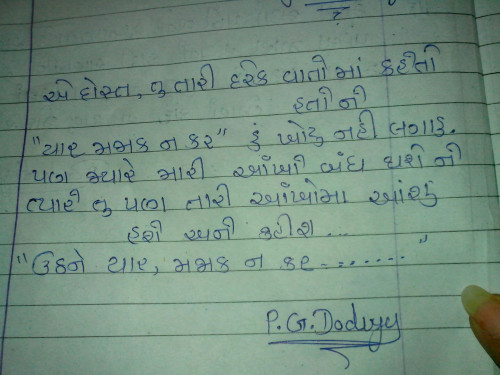 એ દોસ્ત, તુ તારી દરેક વાતો માં કહેતો
હતો ને
"યાર મજાક ન કર" હું ખોટુ નહી લગાડુ.
પણ જ્યારે મારી આઁખો બંધ થશે ને
ત્યારે તુ પણ તારી આઁખોમા આંશુ
હશે અને કહીશ ...
"ઉઠને યાર, મજાક ન કર ..........."
P. G. Dodiya